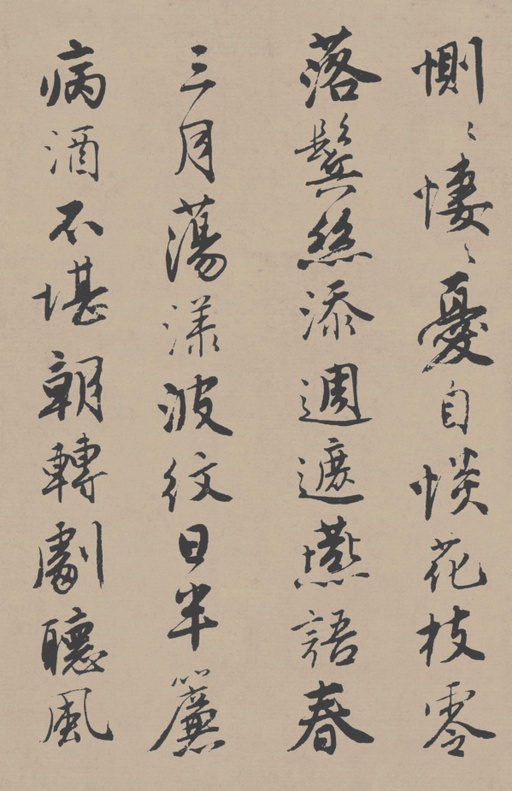 惻〻悽〻憂自惔花枝零
落鬢絲添週遮燕語春
三月蕩漾波紋日半簾
病酒不堪朝轉劇聽風